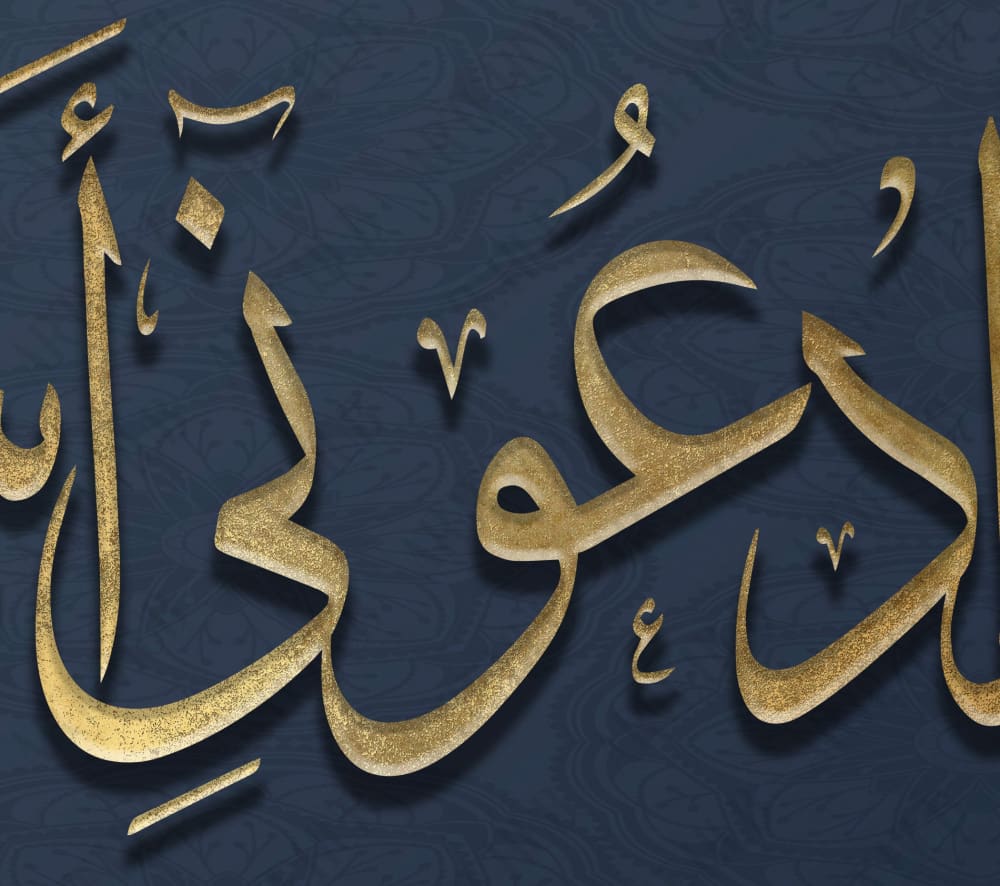 ادْعُونِي أَ